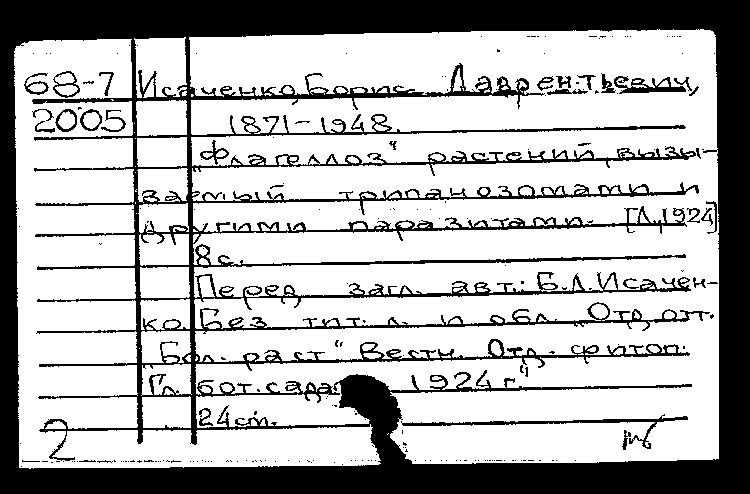 68-7 Исаченко, Борис Лаврентьевич,
2005 1871-1948.
„Флагеллоз" растений, вызы-
ваемый трипанозомами и
другими паразитами. [Л., 1924]
8с.
Перед загл. авт.: Б.Л.Исачен-
ко. Без тит. л. и обл. „Отд. отт.
„Бол. раст" Вестн. Отд. фитоп.
Гл. бот. сада 1924 г."
24см.
2